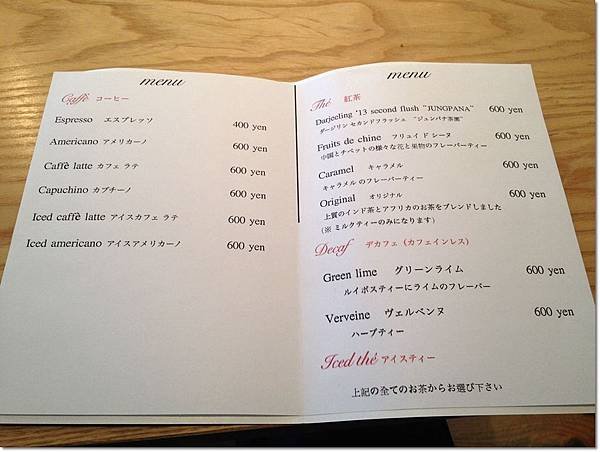 menu
Caffè コーヒー
Espresso エスプレッソ 400 yen
Americano アメリカーノ 600 yen
Caffè latte カフェ ラテ 600 yen
Capuchino カプチーノ 600 yen
Iced caffè latte アイスカフェ ラテ 600 yen
Iced americano アイスアメリカーノ 600 yen
menu
Thé 紅茶
Darjeeling '13 second flush "JUNGPANA" 600 yen
ダージリン セカンドフラッシュ "ジュンパナ茶園"
Fruits de chine フリュイ ド シーヌ 600 yen
中国とチベットの様々な花と果物のフレーバーティー
Caramel キャラメル 600 yen
キャラメル のフレーバーティー
Original オリジナル 600 yen
上質のインド茶とアフリカのお茶をブレンドしました
(※ ミルクティーのみになります)
Decaf デカフェ (カフェインレス)
Green lime グリーンライム 600 yen
ルイボスティーにライムのフレーバー
Verveine ヴェルベンヌ 600 yen
ハーブティー
Iced thé アイスティー
上記の全てのお茶からお選び下さい